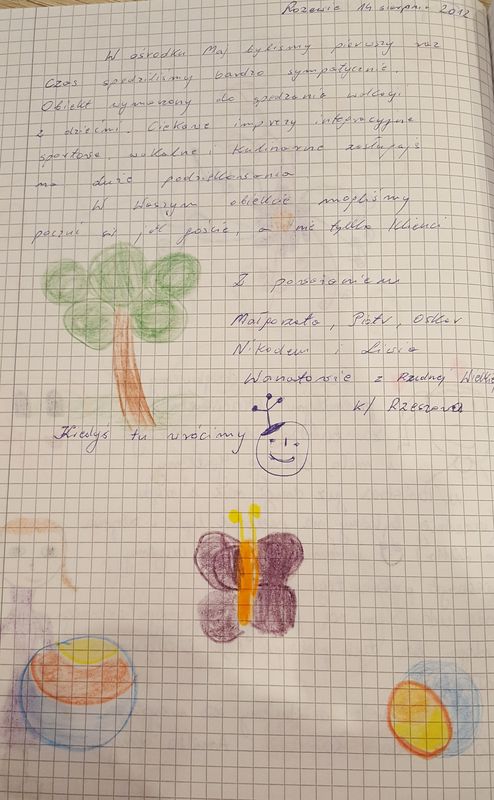 Rozewie 14 sierpnia 2012
W ośrodku Maj byliśmy pierwszy raz
Czas spędziliśmy bardzo sympatycznie.
Obiekt wymarzony do spędzania
z dziećmi. Ciekawe imprezy integracyjne
sportowe, wokalne i kulinarne zasługują
na duże podziękowania
W Waszym obiekcie mogliśmy
poczuć się, jak goście, a nie tylko klienci
Z poważaniem
Małgorzata, Piotr, Oskar
Nikodem i
z Rudnej Wielkiej
k/ Rzeszowa
Kiedyś tu wrócimy